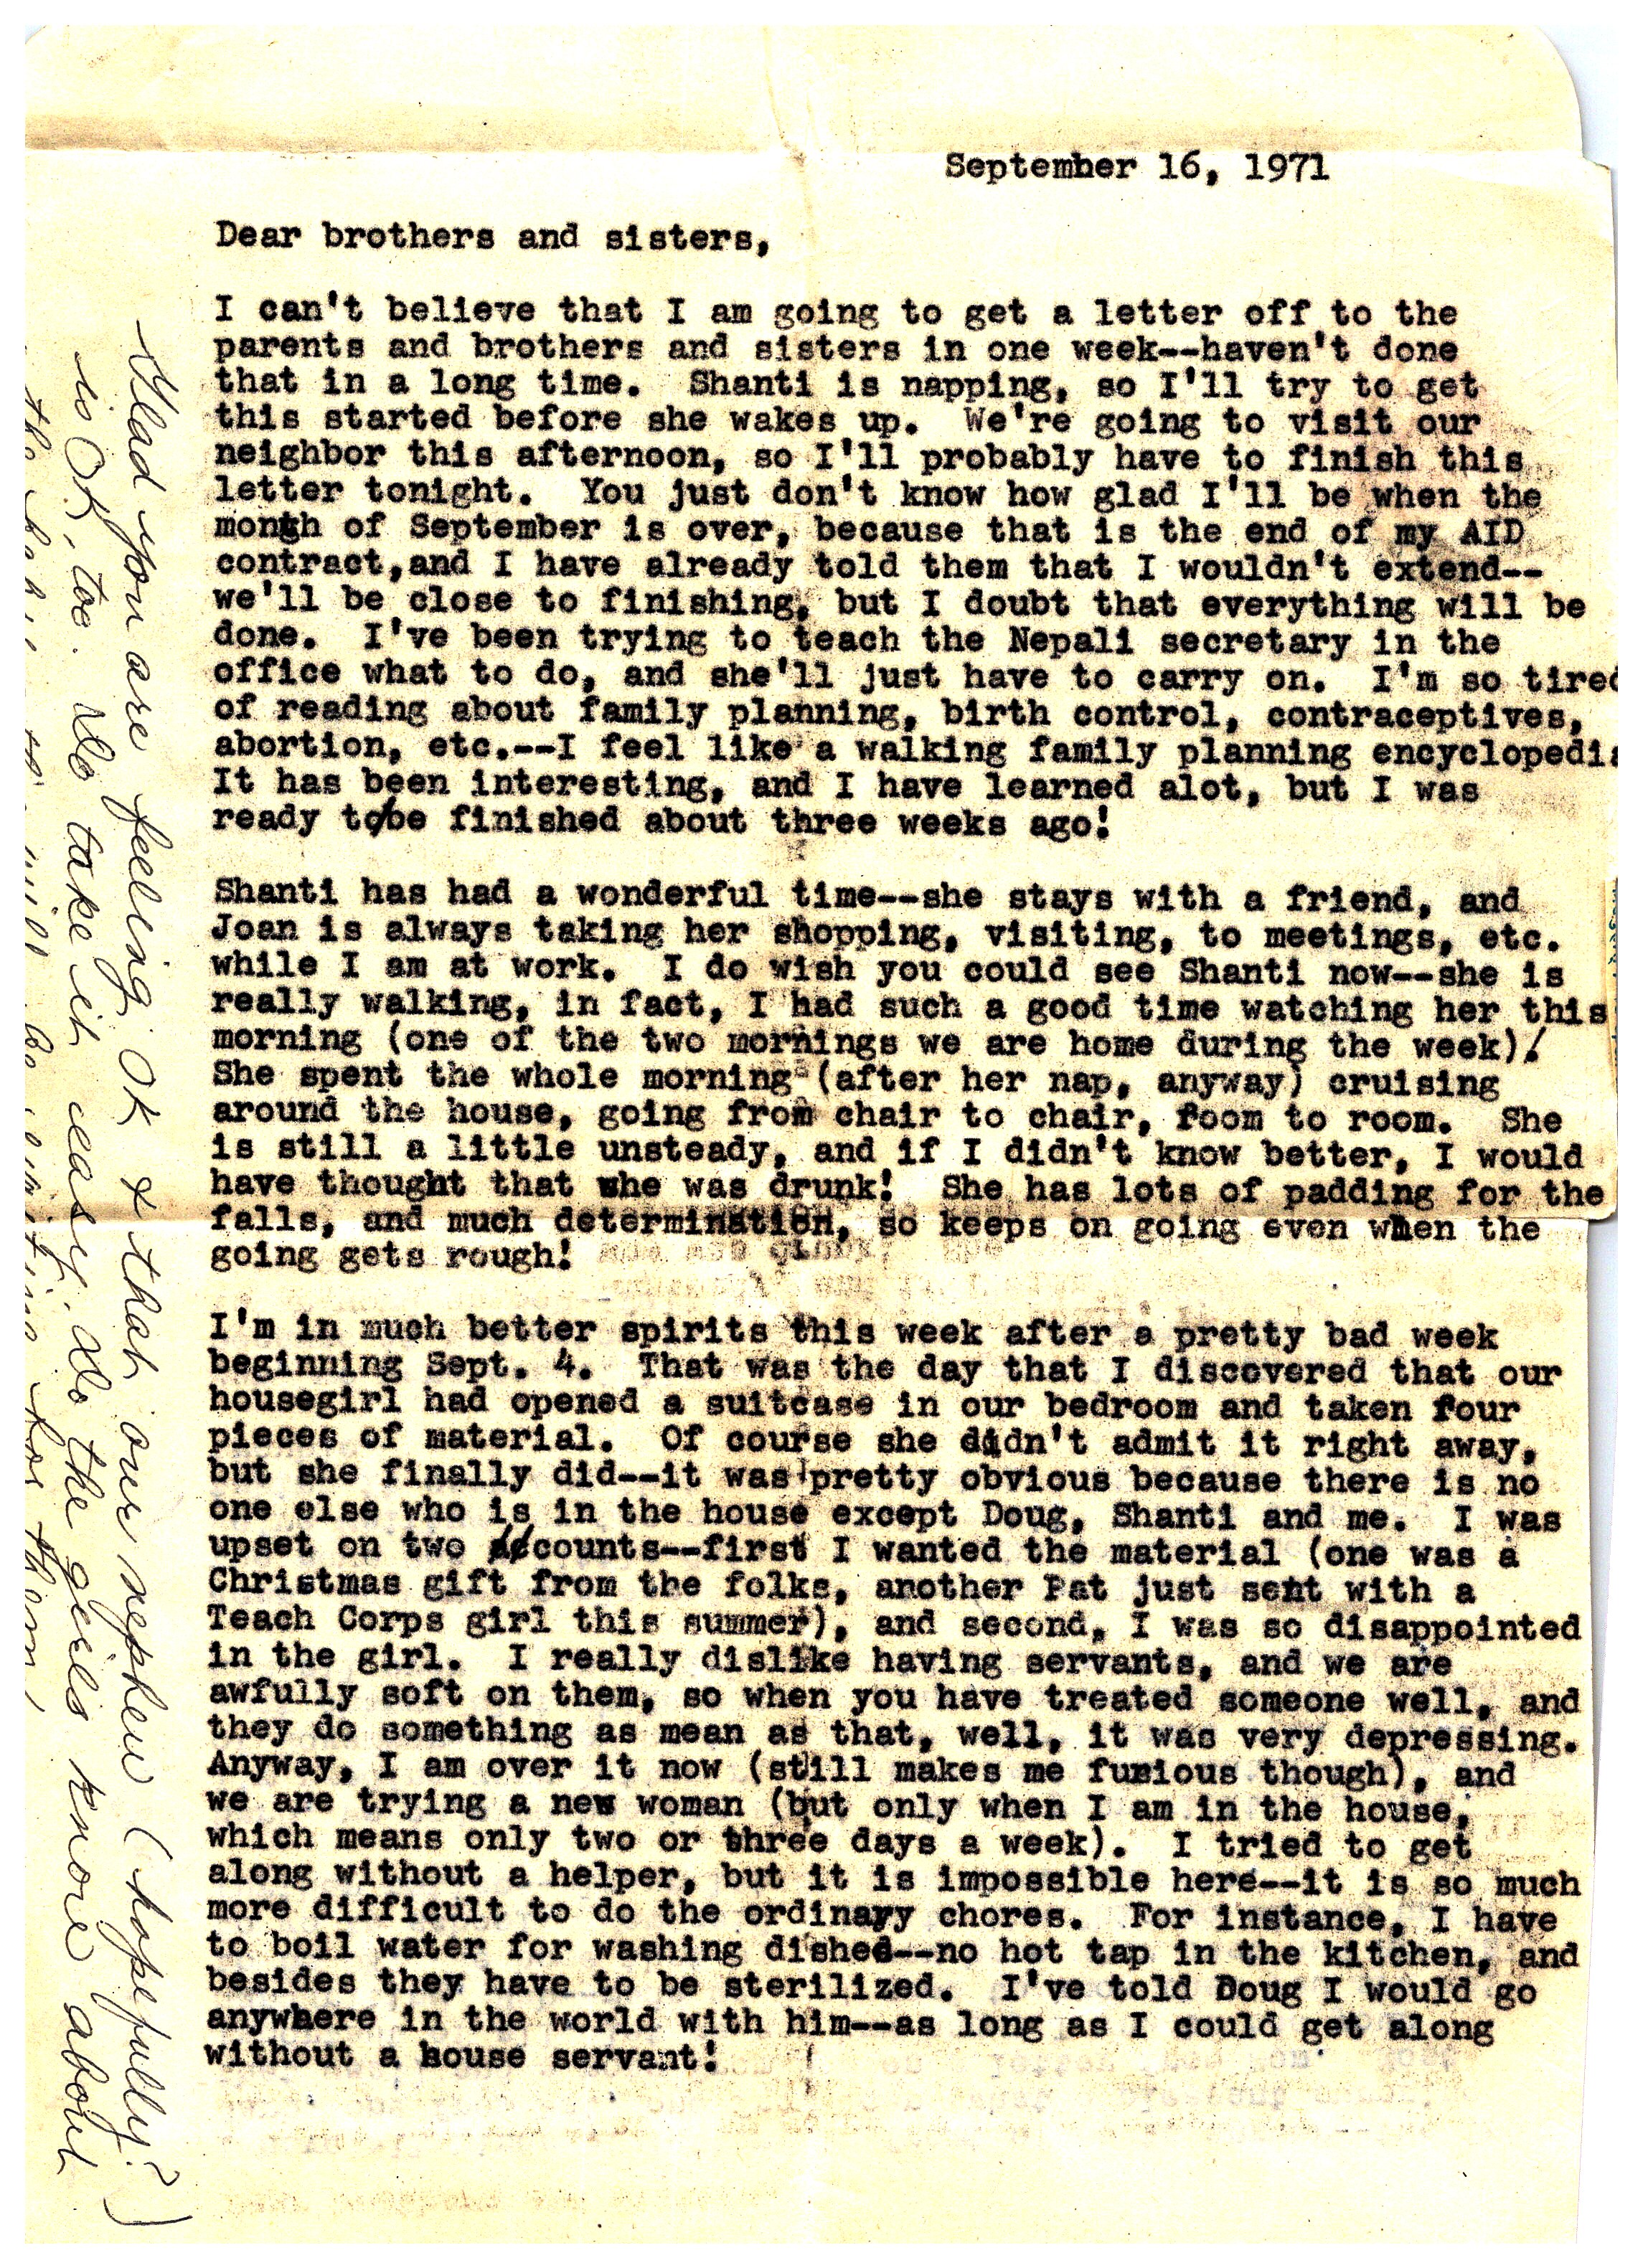 September 16, 1971
Dear brothers and sisters,
I can't believe that I am going to get a letter off to the
parents and brothers and sisters in one week--haven't done
that in a long time. Shanti is napping, so I'll try to get
this started before she wakes up. We're going to visit our
neighbor this afternoon, so I'll probably have to finish this
letter tonight. You just don't know how glad I'll be when the
month of September is over, because that is the end of my AID
contract,and I have already told them that I wouldn't extend--
we'll be close to finishing, but I doubt that everything will be
done. I've been trying to teach the Nepali secretary in the
office what to do, and she'll just have to carry on. I'm so tired
of reading about family planning, birth control, contraceptives,
abortion, etc.--I feel like a walking family planning encyclopedia
It has been interesting, and I have learned alot, but I was
ready to be finished about three weeks ago!
Shanti has had a wonderful time--she stays with a friend, and
Joan is always taking her shopping, visiting, to meetings, etc.
while I am at work. I do wish you could see Shanti now--she is
really walking, in fact, I had such a good time watching her this
morning (one of the two mornings we are home during the week)!
She spent the whole morning (after her nap, anyway) cruising
around the house, going from chair to chair, room to room. She
is still a little unsteady, and if I didn't know better, I would
have thought that she was drunk! She has lots of padding for the
falls, and much determination, so keeps on going even when the
going gets rough!
I'm in much better spirits this week after a pretty bad week
beginning Sept. 4. That was the day that I discovered that our
housegirl had opened a suitcase in our bedroom and taken four
pieces of material. Of course she didn't admit it right away,
but she finally did--it was pretty obvious because there is no
one else who is in the house except Doug, Shanti and me. I was
upset on two accounts--first I wanted the material (one was a
Christmas gift from the folks, another Pat just sent with a
Teach Corps girl this summer), and second, I was so disappointed
in the girl. I really dislike having servants, and we are
awfully soft on them, so when you have treated someone well, and
they do something as mean as that, well, it was very depressing.
Anyway, I am over it now (still makes me furious though), and
we are trying a new woman (but only when I am in the house,
which means only two or three days a week). I tried to get
along without a helper, but it is impossible here--it is so much
more difficult to do the ordinary chores. For instance, I have
to boil water for washing dishes--no hot tap in the kitchen, and
besides they have to be sterilized. I've told Doug I would go
anywhere in the world with him--as long as I could get along
without a house servant!
Glad you are feeling OK & that our nephew (hopefully?)
is OK, too. Do take it easy. Do the girls know about
the for them,